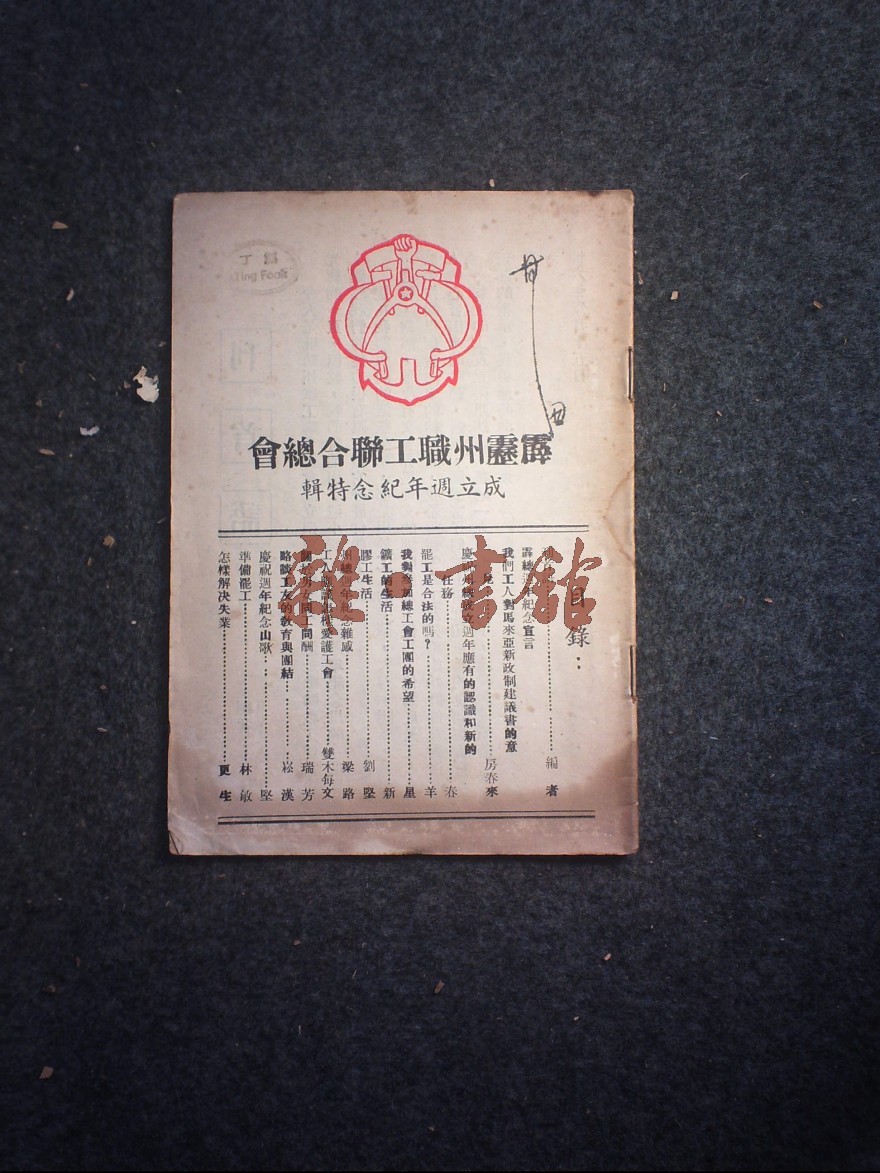 Ting Fook
霹靂州職工聯合總會
成立週年紀念特輯
目錄：
編者
霹總週年紀念宣言
我們工人對馬來亞新政制建議書的意
見 房春來
慶祝州總成立週年應有的認識和新的
任務 春
罷工是合法的嗎？ 羊
我對參加總工會工團的希望 星
鑛工的生活 新
膠工生活 劉堅
州總週年紀念雜感 梁路
工人 愛護工會 雙木每文
女同工問酬 瑞芳
略談工友的教育與團結 崧漢
慶祝週年紀念山歌 堅
準備罷工 林敏
怎樣解决失業 更生
雜·書館